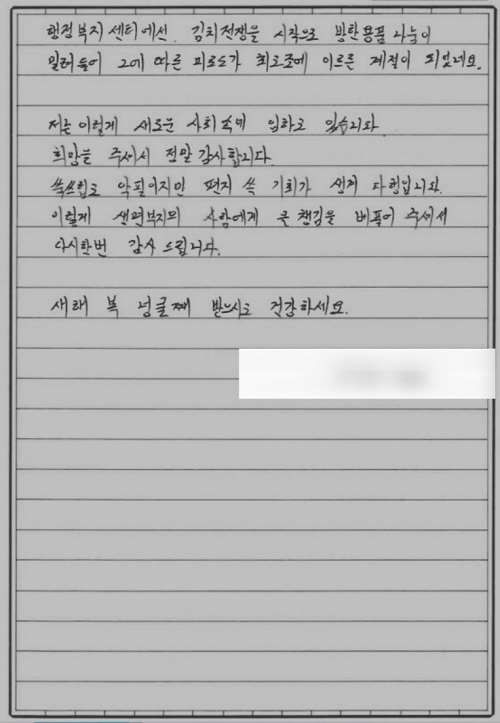 행정복지센터에선. 김치전쟁을 시작으로 방한용품 나눔이
밀려들어 그에 따른 피로도가 최고조에 이르른 계절이 되었네요.
저는 이렇게 새로운 사회 속에 임하고 있습니다.
희망을 주셔서 정말 감사합니다.
쓱쓱 악필이지만 편지 쓸 기회가 생겨 다행입니다.
이렇게 생면부지의 사람에게 큰 챙김을 베풀어 주셔서
다시한번 감사드립니다.
새해 복 넝쿨째 받으시고 건강하세요.